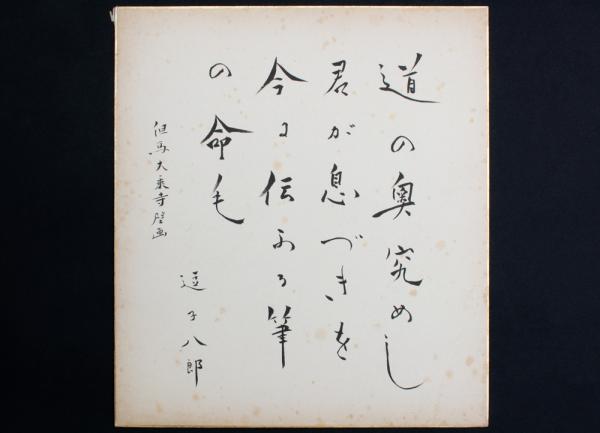 道の奥究めし
君が息づきを
今に伝ふる筆
の命毛
但馬大乗寺壁画
逗子八郎